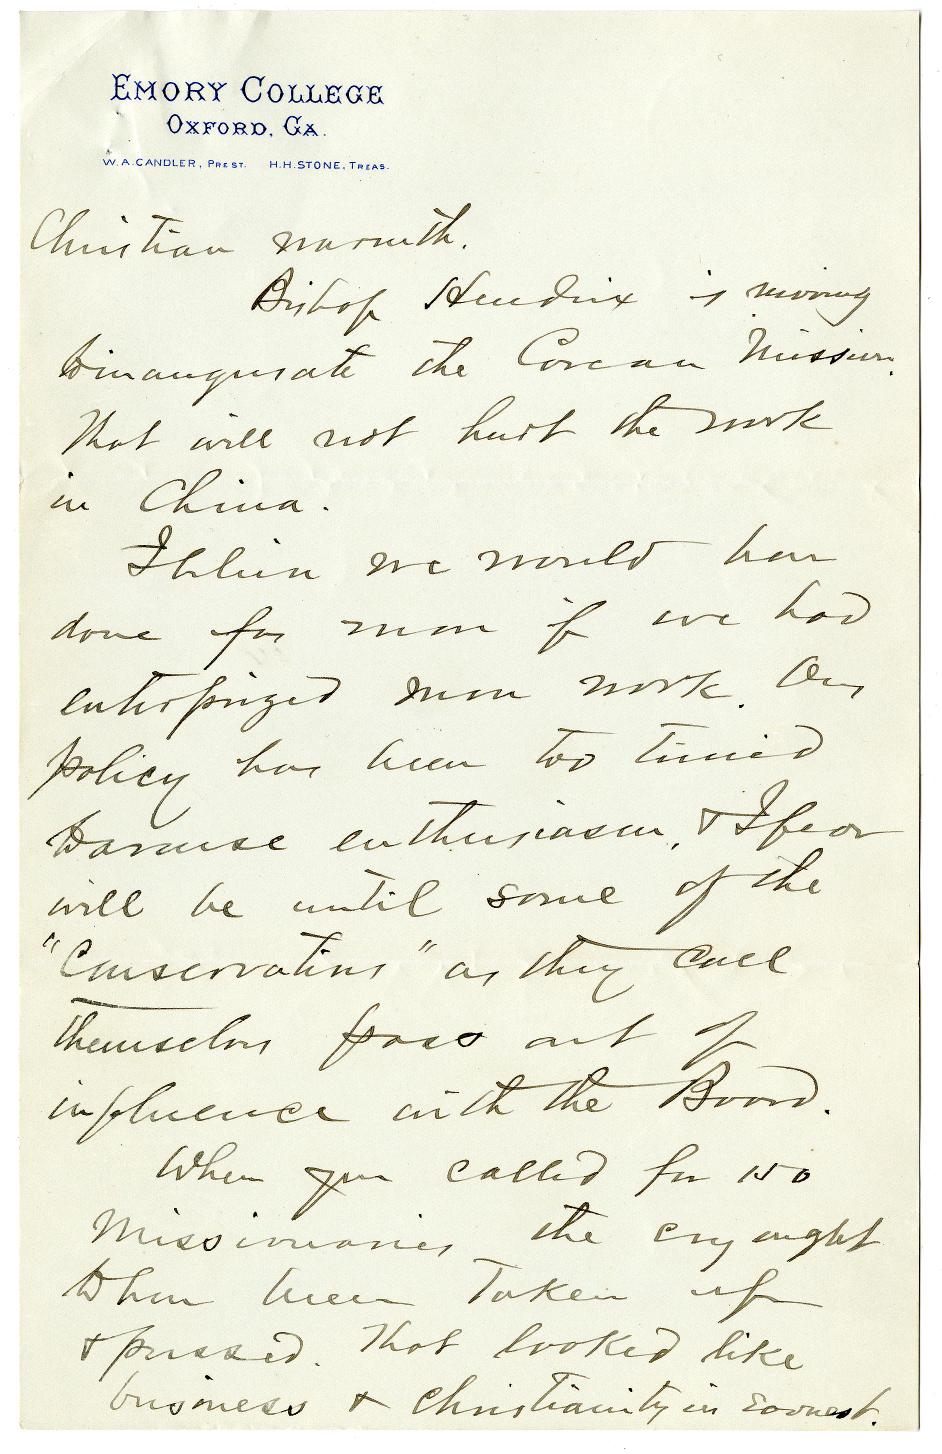 EMORY COLLEGE
OXFORD, GA.
W. A. CANDLER, PREST. H. H. STONE, TREAS.
Christian warmth.
Bishop Hendrix is moving
to inaugurate the Corean Mission.
That will not hurt the work
in China.
I believe we would have
done far more if we had
enterprized more work. Our
policy has been too timid
to arouse enthusiasm, & I fear
will be until some of the
"Conservatives" as they call
themselves pass out of
influence with the Board.
When you called for 150
Missionaries the cry ought
to have been taken up
& pressed. That looked like
business & Christianity in earnest.